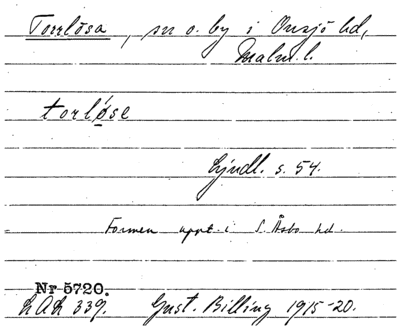 Torrlösa, sn o. by i Onsjö hd,
Malm. l.
torlöse
Ljudl. s. 54.
Formen uppt. i S. Åsbo hd.
Nr 5720.
LAL 339. Gust. Billing 1915-20.